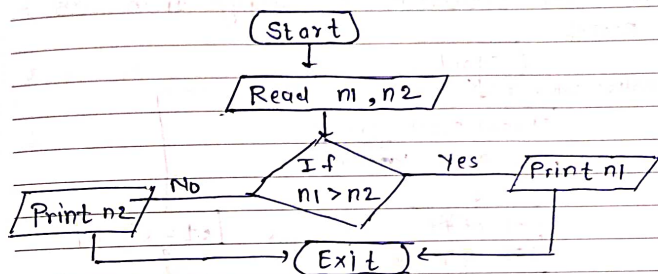 Start
Read n1, n2
If
n1 > n2
Yes
Print n1
No
Print n2
Exit